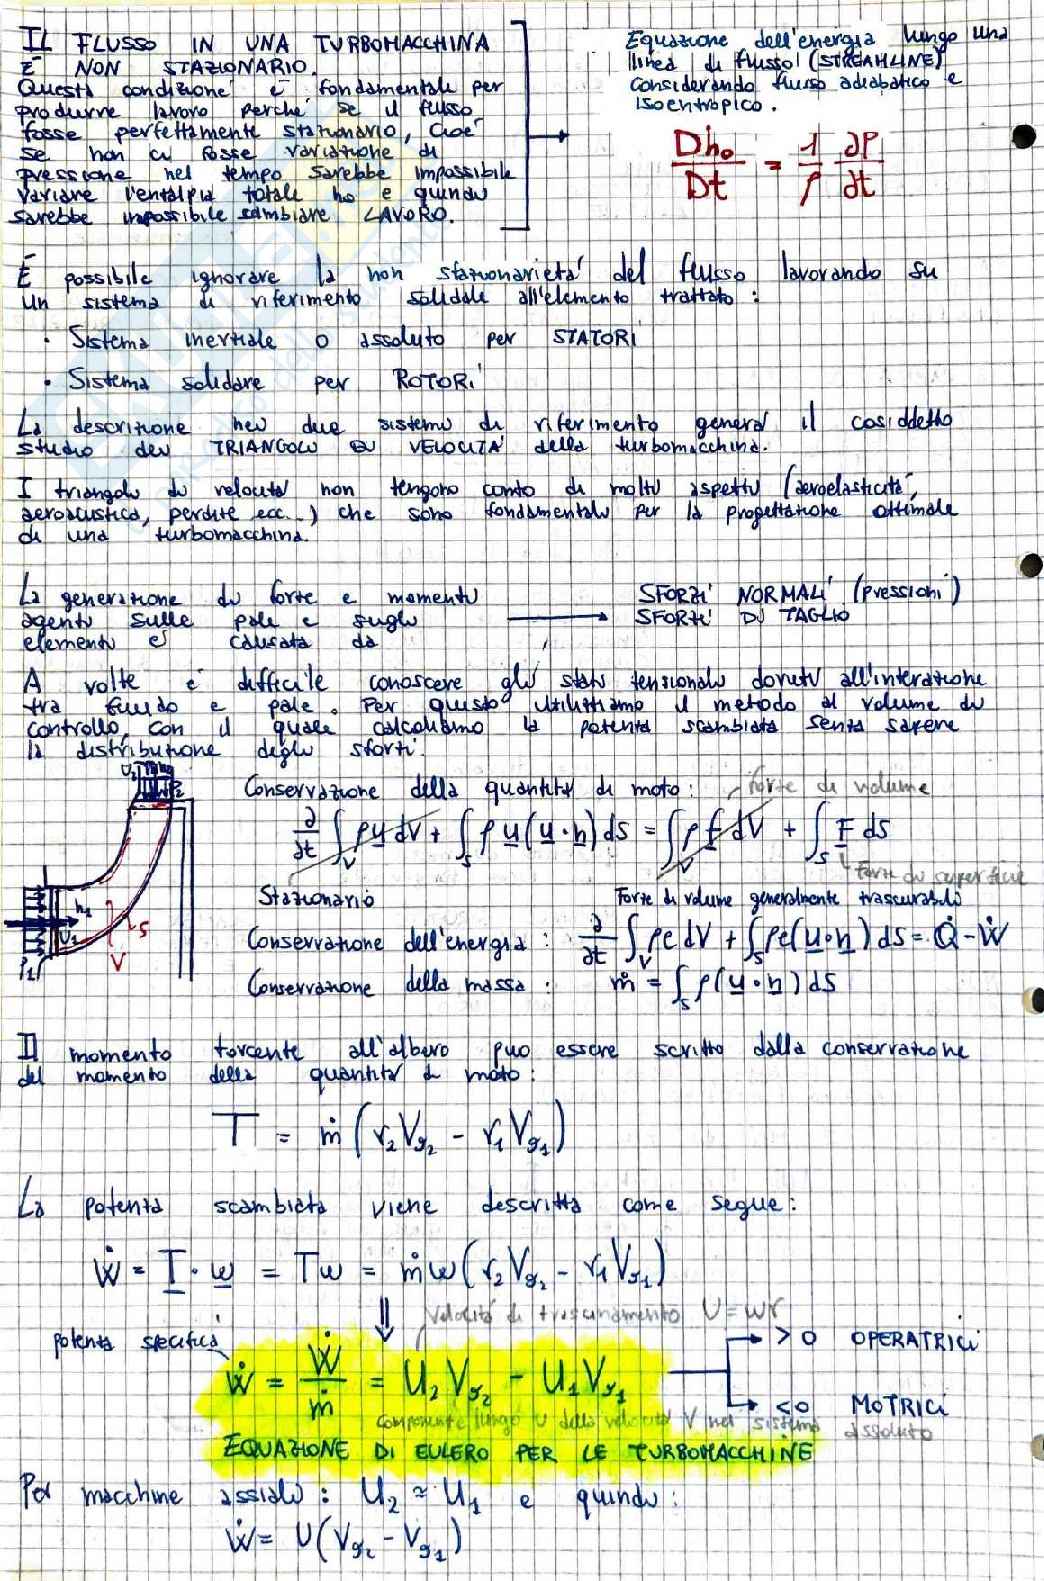 IL FLUSSO IN UNA TURBOMACCHINA
È NON STAZIONARIO.
Questa condizione è fondamentale per
produrre lavoro perché se il flusso
fosse perfettamente stazionario, cioè
se non ci fosse variazione di
pressione nel tempo sarebbe impossibile
variare l'entalpia totale h₀ e quindi
sarebbe impossibile scambiare LAVORO.
Equazione dell'energia lungo una
linea di flusso (STREAMLINE)
considerando flusso adiabatico e
isoentropico.
Dh₀/Dt = 1/ρ ∂P/∂t
È possibile ignorare la non stazionarietà del flusso lavorando su
un sistema di riferimento solidale all'elemento trattato:
· Sistema inerziale o assoluto per STATORI
· Sistema solidare per ROTORI
La descrizione nei due sistemi di riferimento genera il cosiddetto
studio dei TRIANGOLI DI VELOCITÀ della turbomacchina.
I triangoli di velocità non tengono conto di molti aspetti (aeroelasticità,
aeroacustica, perdite ecc...) che sono fondamentali per la progettazione ottimale
di una turbomacchina.
La generazione di forze e momenti
agenti sulle pale e sugli
elementi è causata da
SFORZI NORMALI (pressioni)
SFORZI DI TAGLIO
A volte è difficile conoscere gli stati tensionali dovuti all'interazione
tra fluido e pale. Per questo utilizziamo il metodo al volume di
controllo, con il quale calcoliamo la potenza scambiata senza sapere
la distribuzione degli sforzi.
Conservazione della quantità di moto: forze di volume
∂/∂t ∫_V ρu dV + ∫_S ρu(u·n)dS = ∫_V ρf dV + ∫_S F dS
Forze di superficie
Stazionario
Forze di volume generalmente trascurabili
Conservazione dell'energia: ∂/∂t ∫_V ρe dV + ∫_S ρe(u·n)dS = Q̇ - Ẇ
Conservazione della massa: ṁ = ∫_S ρ(u·n)dS
h₁
S
V
Il momento torcente all'albero può essere scritto dalla conservazione
del momento della quantità di moto:
T = ṁ(r₂V_ϑ₂ - r₁V_ϑ₁)
La potenza scambiata viene descritta come segue:
Ẇ = T·ω = Tω = ṁω(r₂V_ϑ₂ - r₁V_ϑ₁)
⇓ velocità di trascinamento U=ωr
potenza specifica
ẇ = Ẇ/ṁ = U₂V_ϑ₂ - U₁V_ϑ₁
>0 OPERATRICI
<0 MOTRICI
componente lungo U della velocità V nel sistema assoluto
EQUAZIONE DI EULERO PER LE TURBOMACCHINE
Per macchine assiali: U₂ ≈ U₁ e quindi:
ẇ = U(V_ϑ₂ - V_ϑ₁)